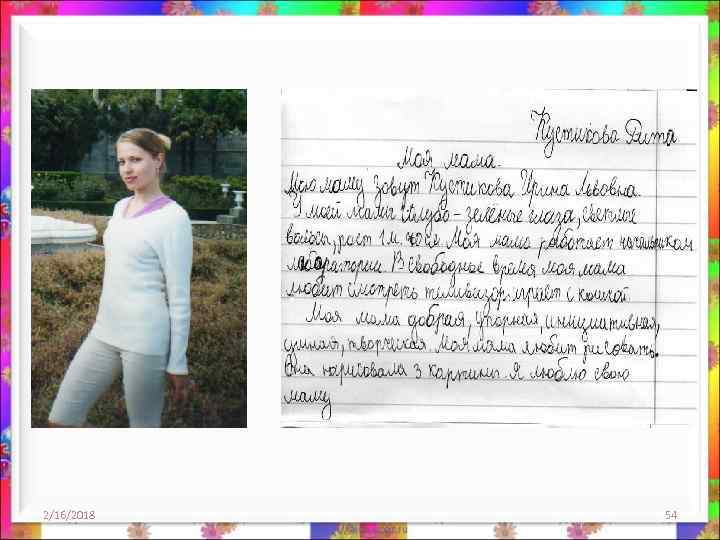 Кустикова Рита
Моя мама.
Мою маму зовут Кустикова Ирина Львовна.
У моей мамы голубо-зелёные глаза, светлые
волосы, рост 1 м. Моя мама работает начальником
лаборатории. В свободное время моя мама
любит смотреть телевизор, играет с кошкой.
Моя мама добрая, упорная, инициативная,
умная, творческая. Моя мама любит рисовать.
Она нарисовала 3 картины. Я люблю свою
маму
2/16/2018
54